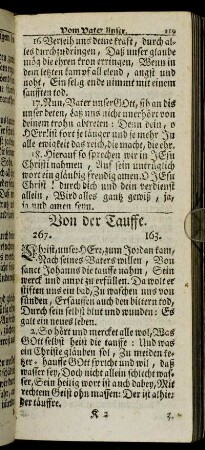 Vom Vater Unser. 219
16. Verleih uns deine kraft, durch al-
les durchzudringen, Daß unser glaube
mög die ehren kron erringen, Wenn in
dem letzten kampf all elend, angst und
noht, Ein selig ende nimmt mit einem
sanfften tod.
17. Nun, Vater unser GOtt, sih an bis
unser beten, daß uns nicht unerhört von
deinem trohn abtreten: Denn dein, o
HErr! ist fort je länger und je mehr In
alle ewigkeit das reich, die macht, die ehr.
18. Hierauf so sprechen wir in JEsu
Christi nahmen, Auf sein untrüglich
wort ein gläubig freudig amen. O JEsu
Christ! durch dich und dein verdienst
allein, Wird alles gantz gewiß, ja,
ja und amen seyn.
Von der Tauffe.
267. 163.
Christ, unser HErr, zum Jordan kam,
Nach seines Vaters willen, Von
sanct Johanns die tauffe nahm, Sein
werck und ampt zu erfüllen. Da wolt er
stifften uns ein bad, Zu waschen uns von
sünden, Ersäuffen auch den bittern tod,
Durch sein selbst blut und wunden: Es
galt ein neues leben.
2. So hört und mercket alle wol, Was
GOtt selbst heist die tauffe: Und was
ein Christe gläuben sol, Zu meiden ketzer-
hauffe GOtt spricht und wil, daß
wasser sey, Doch nicht allein schlecht was-
ser, Sein heilig wort ist auch dabey, Mit
rechtem Geist ohn massen: Der ist alhie
der täuffer.
K 2 3.